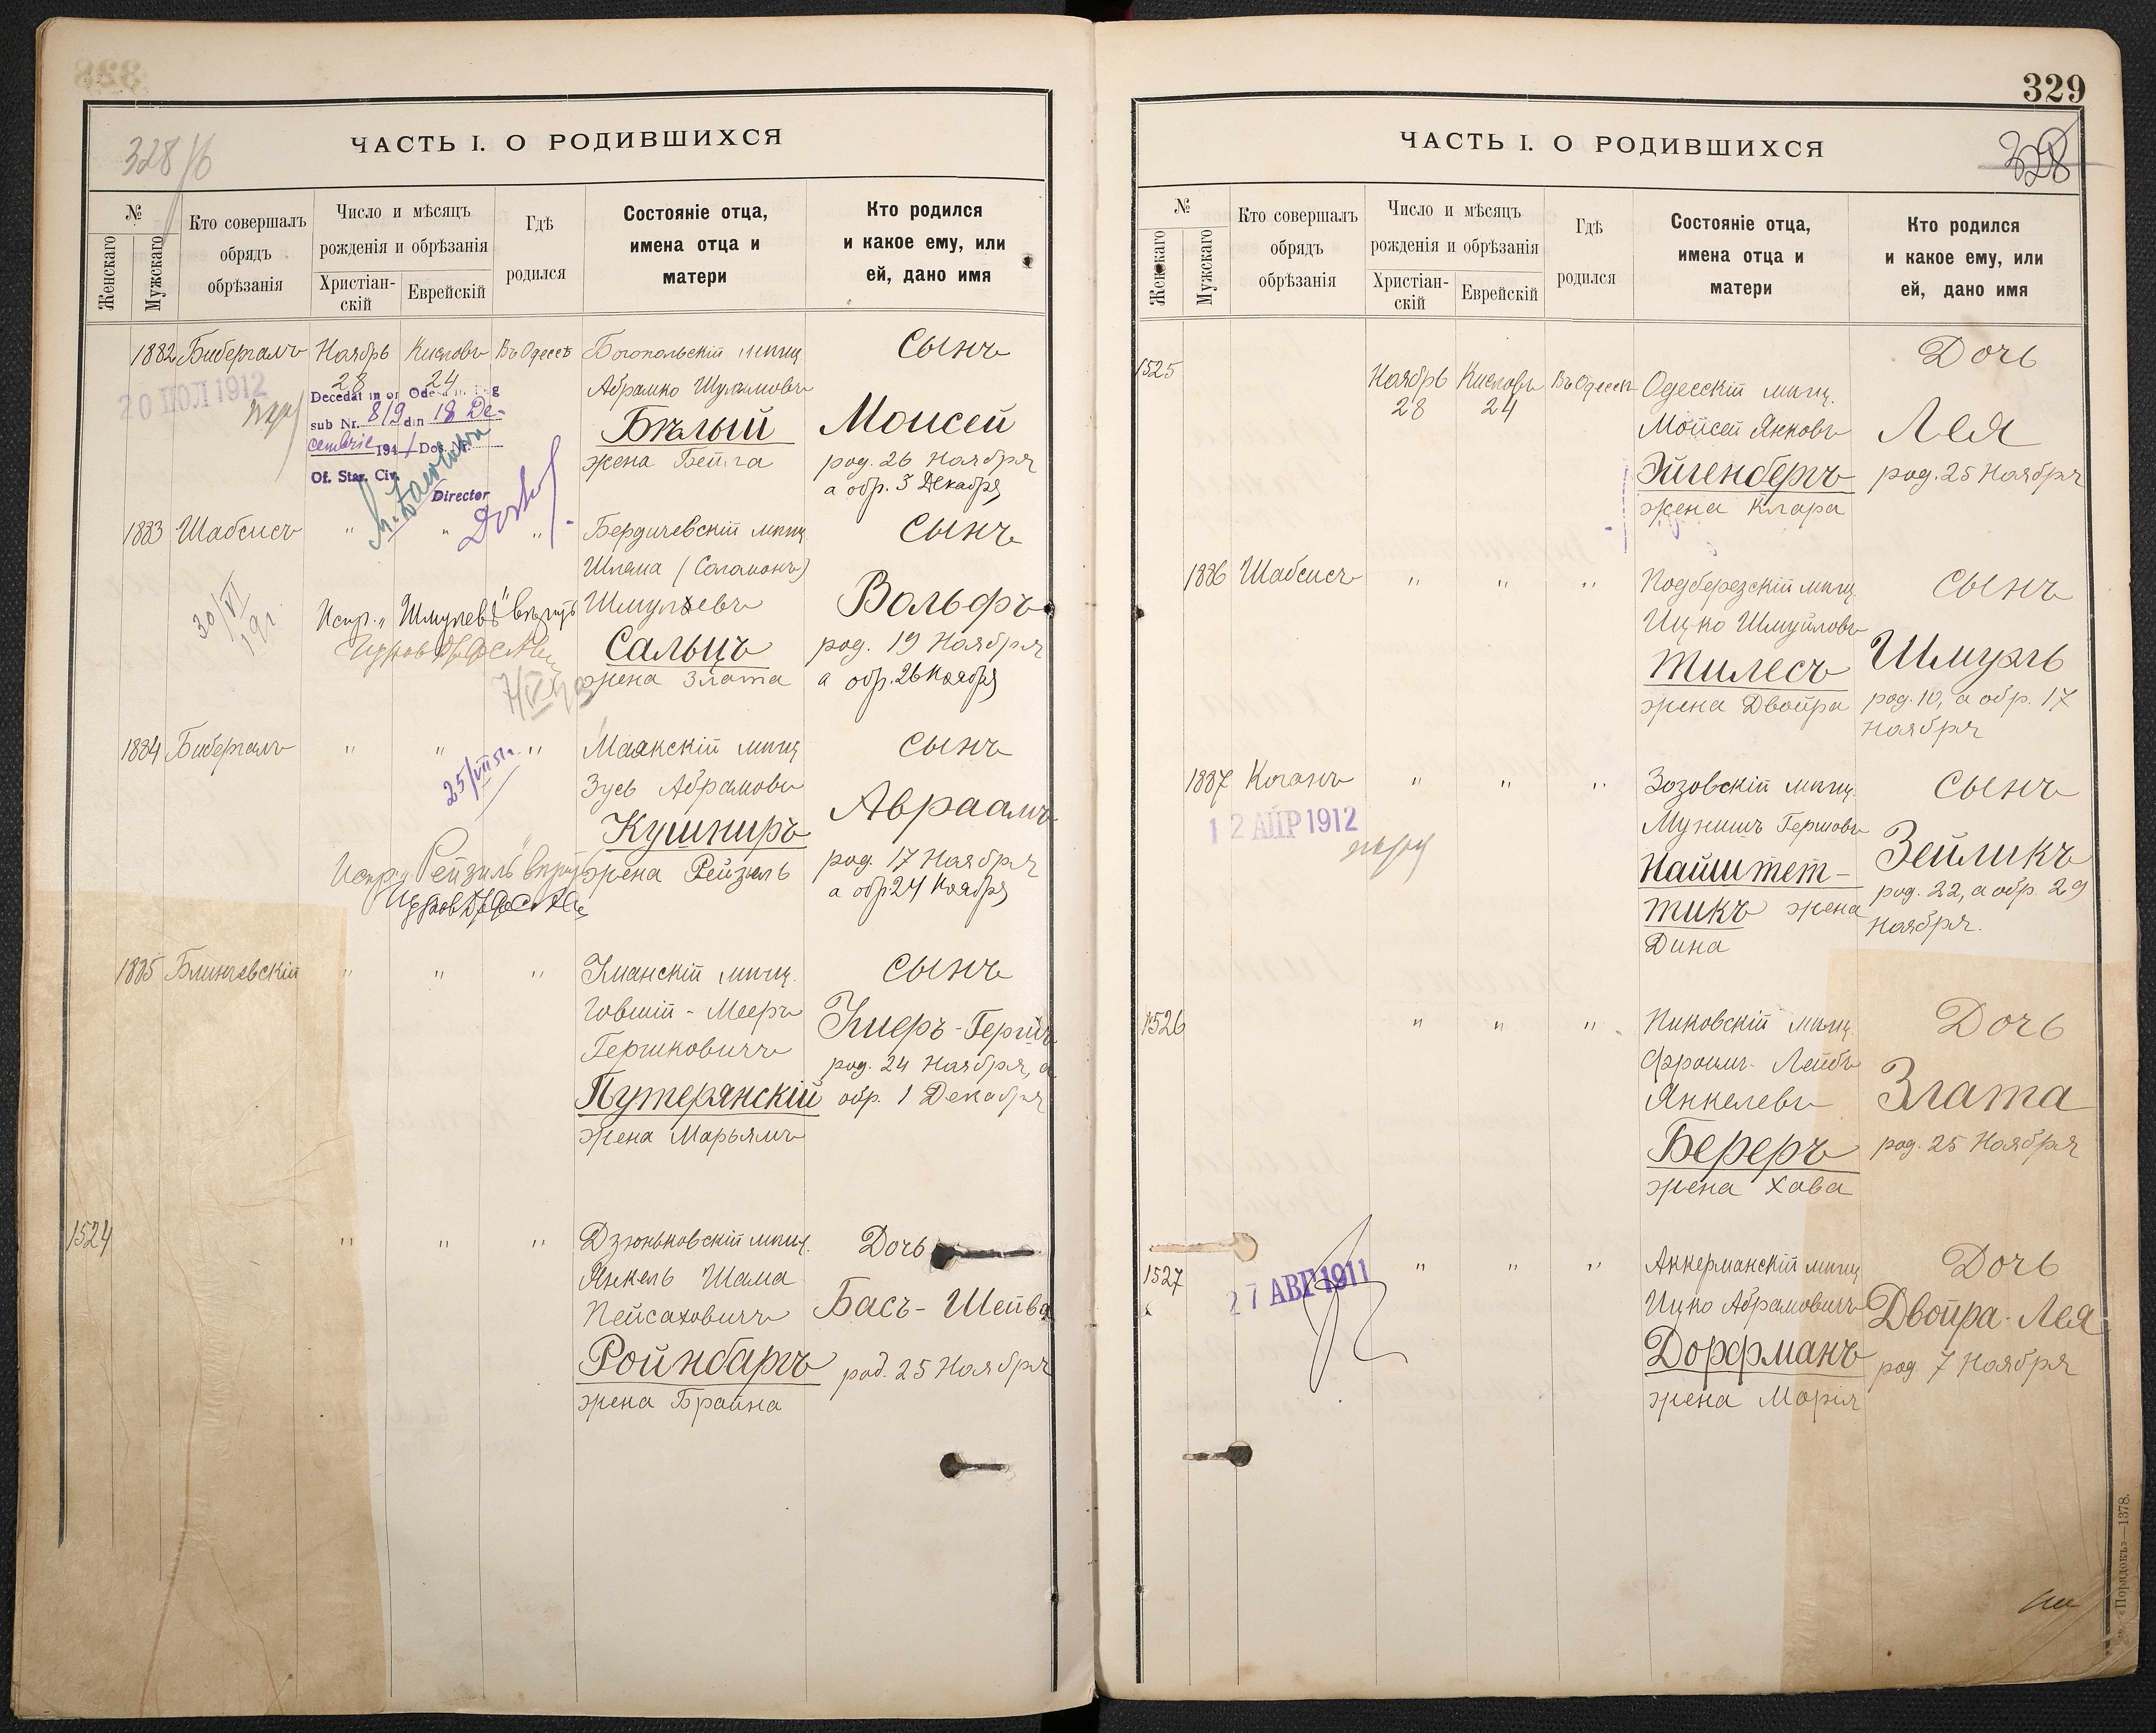 328
ЧАСТЬ I. О РОДИВШИХСЯ
328/б
№
Женскаго
Мужскаго
Кто совершалъ
обрядъ
обрѣзанія
Число и мѣсяцъ
рожденія и обрѣзанія
Христіан-
скій
Еврейскій
Гдѣ
родился
Состояніе отца,
имена отца и
матери
Кто родился
и какое ему, или
ей, дано имя
1882 Бибергалъ Ноябрь 28 Кислевъ 24 Въ Одессѣ
Богопольскій мѣщ.
Абрамко Шулимовъ
Бѣлый
жена Бейла
Сынъ
Моисей
род. 26 Ноября
а обр. 3 Декабря
20 ІЮЛ 1912
Decedat in or Odesa
sub Nr. 819 din 18 De-
cembrie 1941 Dos. Nr.
Of. Star. Civ.
Director
1883 Шабсисъ " " "
Бердичевскій мѣщ.
Шлема (Соломонъ)
Шмулевъ
Сальцъ
жена Злата
Сынъ
Вольфъ
род. 19 Ноября
а обр. 26 Ноября
30/VI
Испр. „Шмулевъ"
1884 Бибергалъ " " "
Маякскій мѣщ.
Зусь Абрамовъ
Кушниръ
жена Рейзель
Сынъ
Авраамъ
род. 17 Ноября
а обр 24 Ноября
25/VII 51 г.
Испр. „Рейзиль"
1885 Блинчевскій " " "
Уманскій мѣщ.
Говшій - Мееръ
Гершковичъ
Путерянскій
жена Марьямъ
Сынъ
Хиеръ - Гершъ
род. 24 Ноября, а
обр. 1 Декабря
1524 " " "
Дзюньковскій мѣщ.
Янкель Шама
Пейсаховичъ
Ройнбаргъ
жена Брайна
Дочь
Басъ - Шейва
род. 25 Ноября
329
ЧАСТЬ I. О РОДИВШИХСЯ
328
№
Женскаго
Мужскаго
Кто совершалъ
обрядъ
обрѣзанія
Число и мѣсяцъ
рожденія и обрѣзанія
Христіан-
скій
Еврейскій
Гдѣ
родился
Состояніе отца,
имена отца и
матери
Кто родился
и какое ему, или
ей, дано имя
1525 Ноябрь 28 Кислевъ 24 Въ Одессѣ
Одесскій мѣщ.
Мойсей Янковъ
Эйгенбергъ
жена Клара
Дочь
Лея
род. 25 Ноября
1886 Шабсисъ " " "
Подберезскій мѣщ.
Ицко Шмуйловъ
Тилесъ
жена Двойра
Сынъ
Шмуль
род. 10, а обр. 17
Ноября
1887 Коганъ " " "
Зозовскій мѣщ.
Мунишъ Гершовъ
Найштет-
тикъ жена
Дина
Сынъ
Зейликъ
род. 22, а обр. 29
Ноября.
12 АПР 1912
1526 " " "
Пиковскій мѣщ.
Фроимъ - Лейбъ
Янкелевъ
Береръ
жена Хава
Дочь
Злата
род. 25 Ноября
1527 " " "
Аккерманскій мѣщ.
Ицко Абрамовичъ
Дорфманъ
жена Марія
Дочь
Двойра - Лея
род 7 Ноября
27 АВГ 1911
«Порядокъ»—1378.